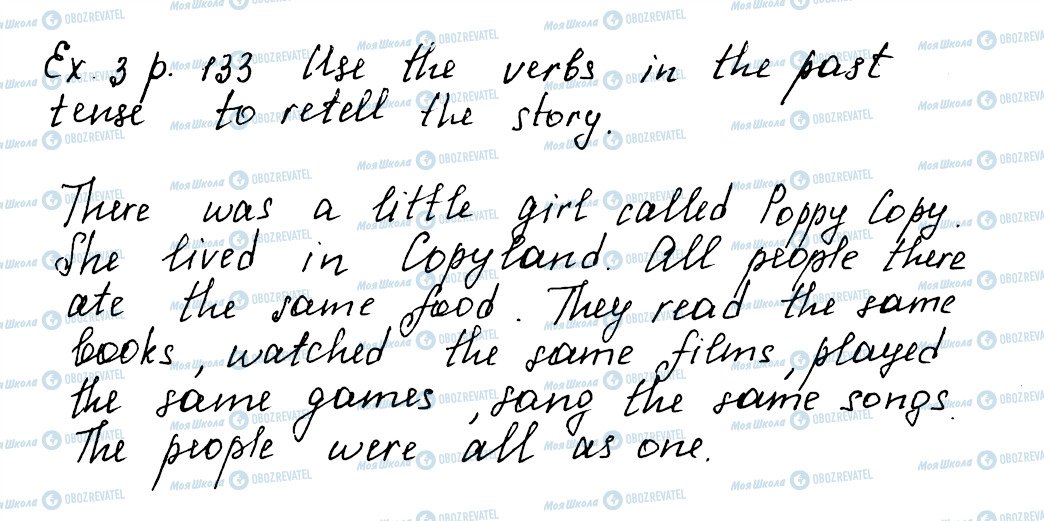 Ex. 3 p. 133 Use the verbs in the past
tense to retell the story.
There was a little girl called Poppy Copy.
She lived in Copyland. All people there
ate the same food. They read the same
books, watched the same films, played
the same games, sang the same songs.
The people were all as one.